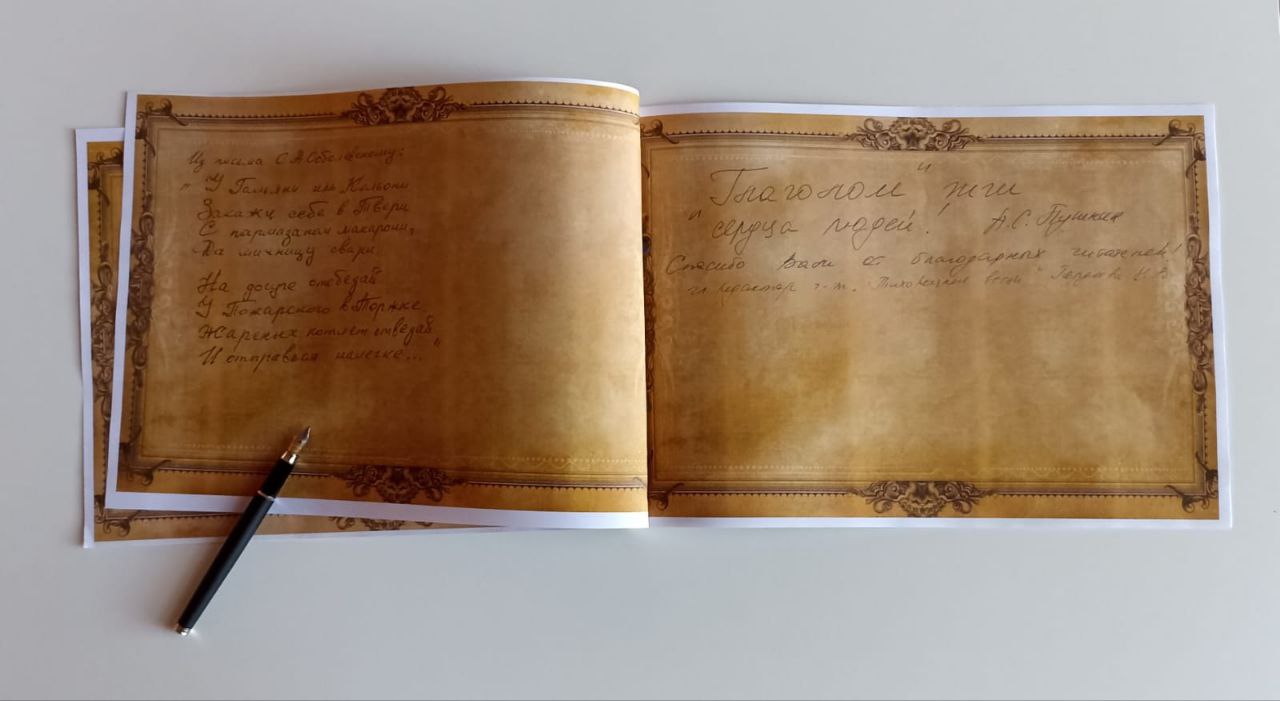 Из письма С.А.Соболевскому:
„У Гальяни иль Кольони
Закажи себе в Твери
С пармазаном макарони,
Да яичницу свари.
На досуге отобедай
У Пожарского в Торжке,
Жареных котлет отведай
И отправься налегке..."
Глаголом жги
сердца людей!" А.С. Пушкин
Спасибо Вам от благодарных читателей!
гл. редактор